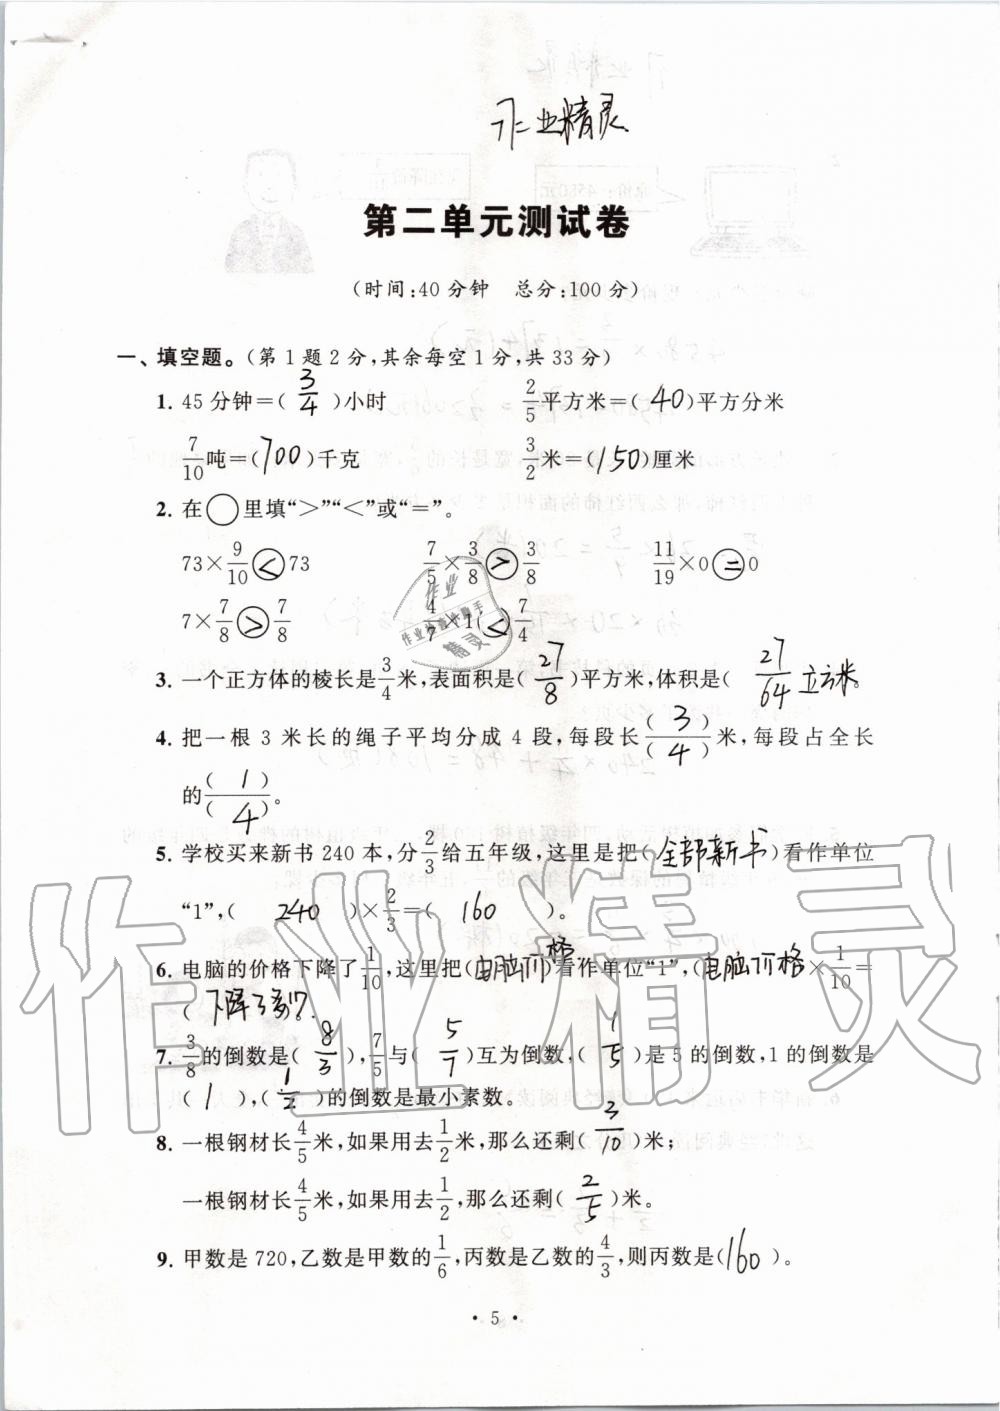 作业精灵
第二单元测试卷
(时间:40分钟 总分:100分)
一、填空题。(第1题2分,其余每空1分,共33分)
1. 45分钟=( 3/4 )小时 2/5平方米=( 40 )平方分米
7/10吨=( 700 )千克 3/2米=( 150 )厘米
2. 在○里填“>”“<”或“=”。
73×9/10 < 73 7/5×3/8 > 3/8 11/19×0 = 0
7×7/8 > 7/8 4/7×1 < 7/4
3. 一个正方体的棱长是3/4米,表面积是( 27/8 )平方米,体积是( 27/64 立方米。
4. 把一根3米长的绳子平均分成4段,每段长( 3 )/( 4 )米,每段占全长
的( 1 )/( 4 )。
5. 学校买来新书240本,分2/3给五年级,这里是把( 全部新书 )看作单位
“1”,( 240 )×2/3=( 160 )。
6. 电脑的价格下降了1/10,这里把( 电脑价格 看作单位“1”,( 电脑价格 ×1/10=
( 下降了多少
7. 3/8的倒数是( 8/3 ),7/5与( 5/7 )互为倒数,( 1/5 )是5的倒数,1的倒数是
( 1 ),( 1/2 )的倒数是最小素数。
8. 一根钢材长4/5米,如果用去1/2米,那么还剩( 3/10 )米;
一根钢材长4/5米,如果用去1/2,那么还剩( 2/5 )米。
9. 甲数是720,乙数是甲数的1/6,丙数是乙数的4/3,则丙数是( 160 )。
• 5 •
作业精灵